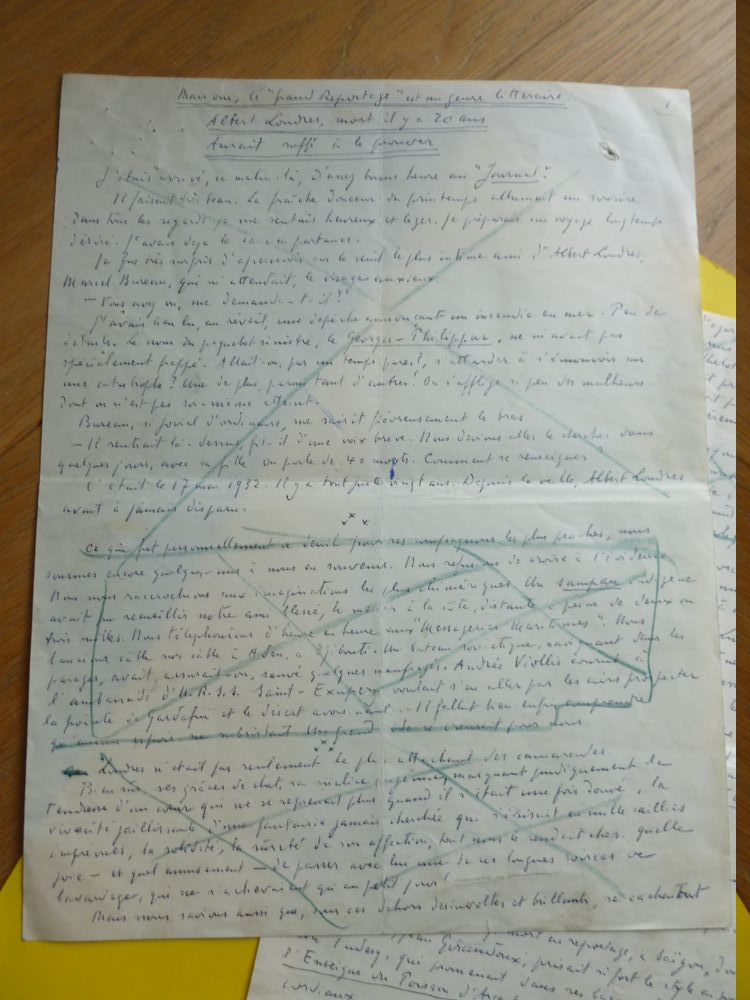 Mais oui, le "Grand Reportage" est un genre littéraire
Albert Londres, mort il y a 20 ans
Aurait suffi à le prouver
1
J'étais arrivé, ce matin-là, d'assez bonne heure au "Journal".
Il faisait très beau. La fraîche douceur du printemps allumait un sourire
dans tous les regards. Je me sentais heureux et léger. Je préparais un voyage longtemps
désiré. J'avais déjà le en partance.
Je fus très surpris d'apercevoir sur le seuil le plus intime ami d'Albert Londres,
Marcel Bureau, qui m'attendait, le visage anxieux.
– Vous avez vu, me demanda-t-il ?
J'avais bien lu, au réveil, une dépêche annonçant un incendie en mer. Peu de
détails. Le nom du paquebot sinistré, le Georges-Philippar, ne m'avait pas
spécialement frappé. Allait-on, par un temps pareil, s'attarder à s'émouvoir sur
une catastrophe ? Une de plus, parmi tant d'autres ! On s'afflige si peu des malheurs
dont on n'est pas soi-même atteint.
Bureau, si jovial d'ordinaire, me saisit fiévreusement le bras
– Il rentrait là-dessus, fit-il d'une voix brève. Nous devions aller le chercher dans
quelques jours, avec sa fille. On parle de 40 morts. Comment se renseigner
C'était le 17 mai 1932. Il y a tout juste vingt ans. Depuis la veille, Albert Londres
avait à jamais disparu.
x x x
Ce que fut personnellement ce deuil pour ses compagnons les plus proches, nous
sommes encore quelques-uns à nous en souvenir. Nous refusions de croire à l'évidence
Nous nous raccrochions aux imaginations les plus chimériques. Un sampan indigène
avait pu recueillir notre ami blessé, le mener à la côte, distante à peine de deux ou
trois milles. Nous téléphonions d'heure en heure aux "Messageries Maritimes". Nous
lancions câble sur câble à Aden, à Djibouti. Un bateau soviétique, naviguant dans les
parages, avait, assurait-on, sauvé quelques naufragés. Andrée Viollis courait à
l'ambassade d'U.R.S.S. Saint-Exupéry voulait s'en aller par les airs prospecter
la pointe de Gardafui et le désert avoisinant... Il fallut bien enfin comprendre
qu'aucun espoir ne subsistait. Un grand vide se creusait pour nous.
x x x
Londres n'était pas seulement le plus attachant des camarades.
Bien sûr, ses grâces de chat, sa malice masquant pudiquement la
tendresse d'un cœur qui ne se reprenait plus quand il s'était une fois donné, la
vivacité jaillissante d'une fantaisie jamais cherchée qui s'épanouissait en mille saillies
imprévues, la solidité, la sûreté de son affection, tout nous le rendait cher. Quelle
joie – et quel amusement – de passer avec lui une de ces longues soirées de
bavardage, qui ne s'achevaient qu'au petit jour !
Mais nous savions aussi que, sous ces dehors désinvoltes et brillants, se cachait tout
Jean Giraudoux, prisait si fort le style
qui promenait dans ses
l'Enseigne du Poisson d'
cordiaux